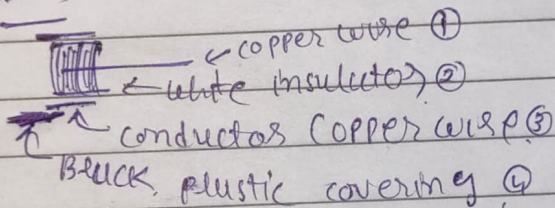 copper wire ①
white insulator ②
conductor Copper wire ③
Black plastic covering ④